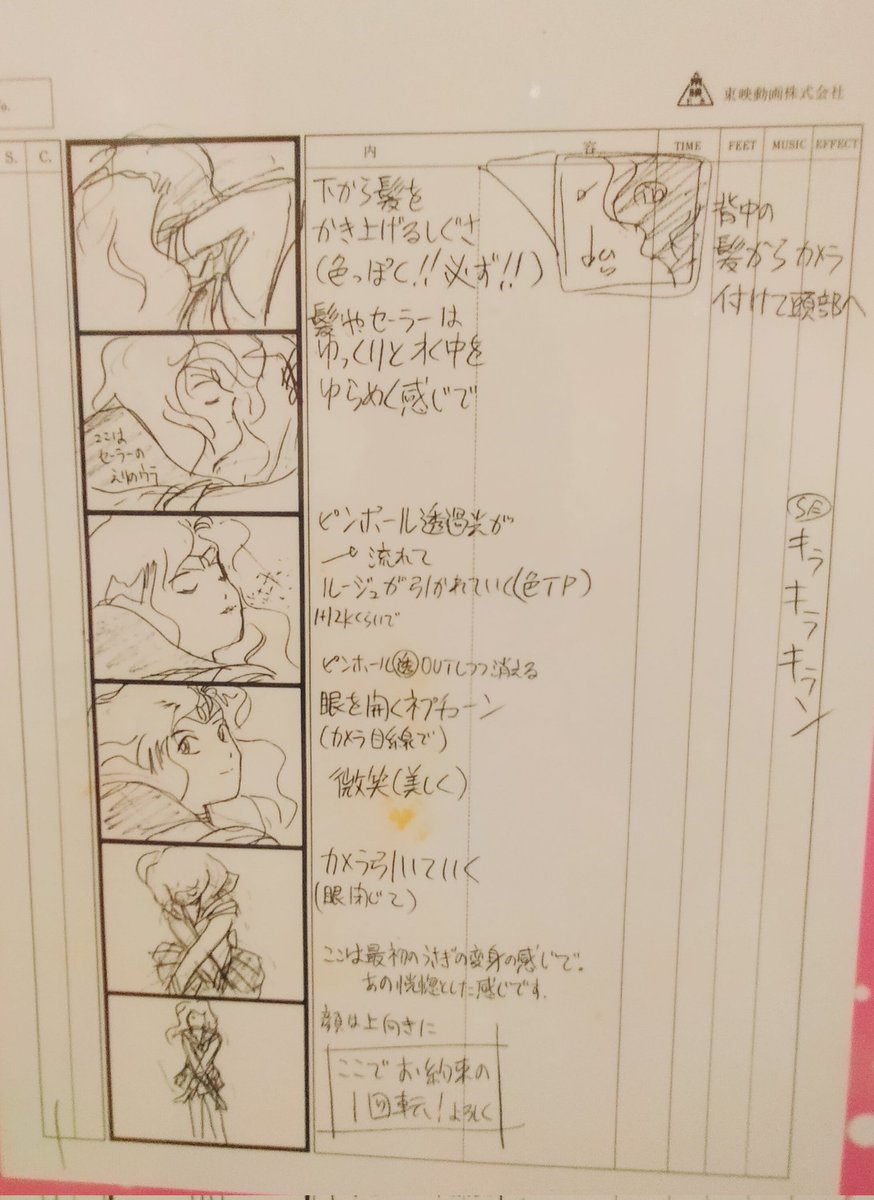 東映動画株式会社
S. C. 内 容 TIME FEET MUSIC EFFECT
下から髪を
かき上げるしぐさ
(色っぽく!!必ず!!)
背中の
髪からカメラ
付けて頭部へ
髪やセーラーは
ゆっくりと水中を
ゆらめく感じで
ここは
セーラーの
えりのウラ
ピンホール透過光が
流れて
ルージュが引かれていく(色TP)
1+12kくらいで
SE
キラ
キラ
キラーン
ピンホール透OUTしつつ消える
眼を開くネプチューン
(カメラ目線で)
微笑(美しく)
カメラ引いていく
(眼閉じて)
ここは最初のうさぎの変身の感じで。
あの恍惚とした感じです.
顔は上向きに
ここでお約束の
1回転!よろしく